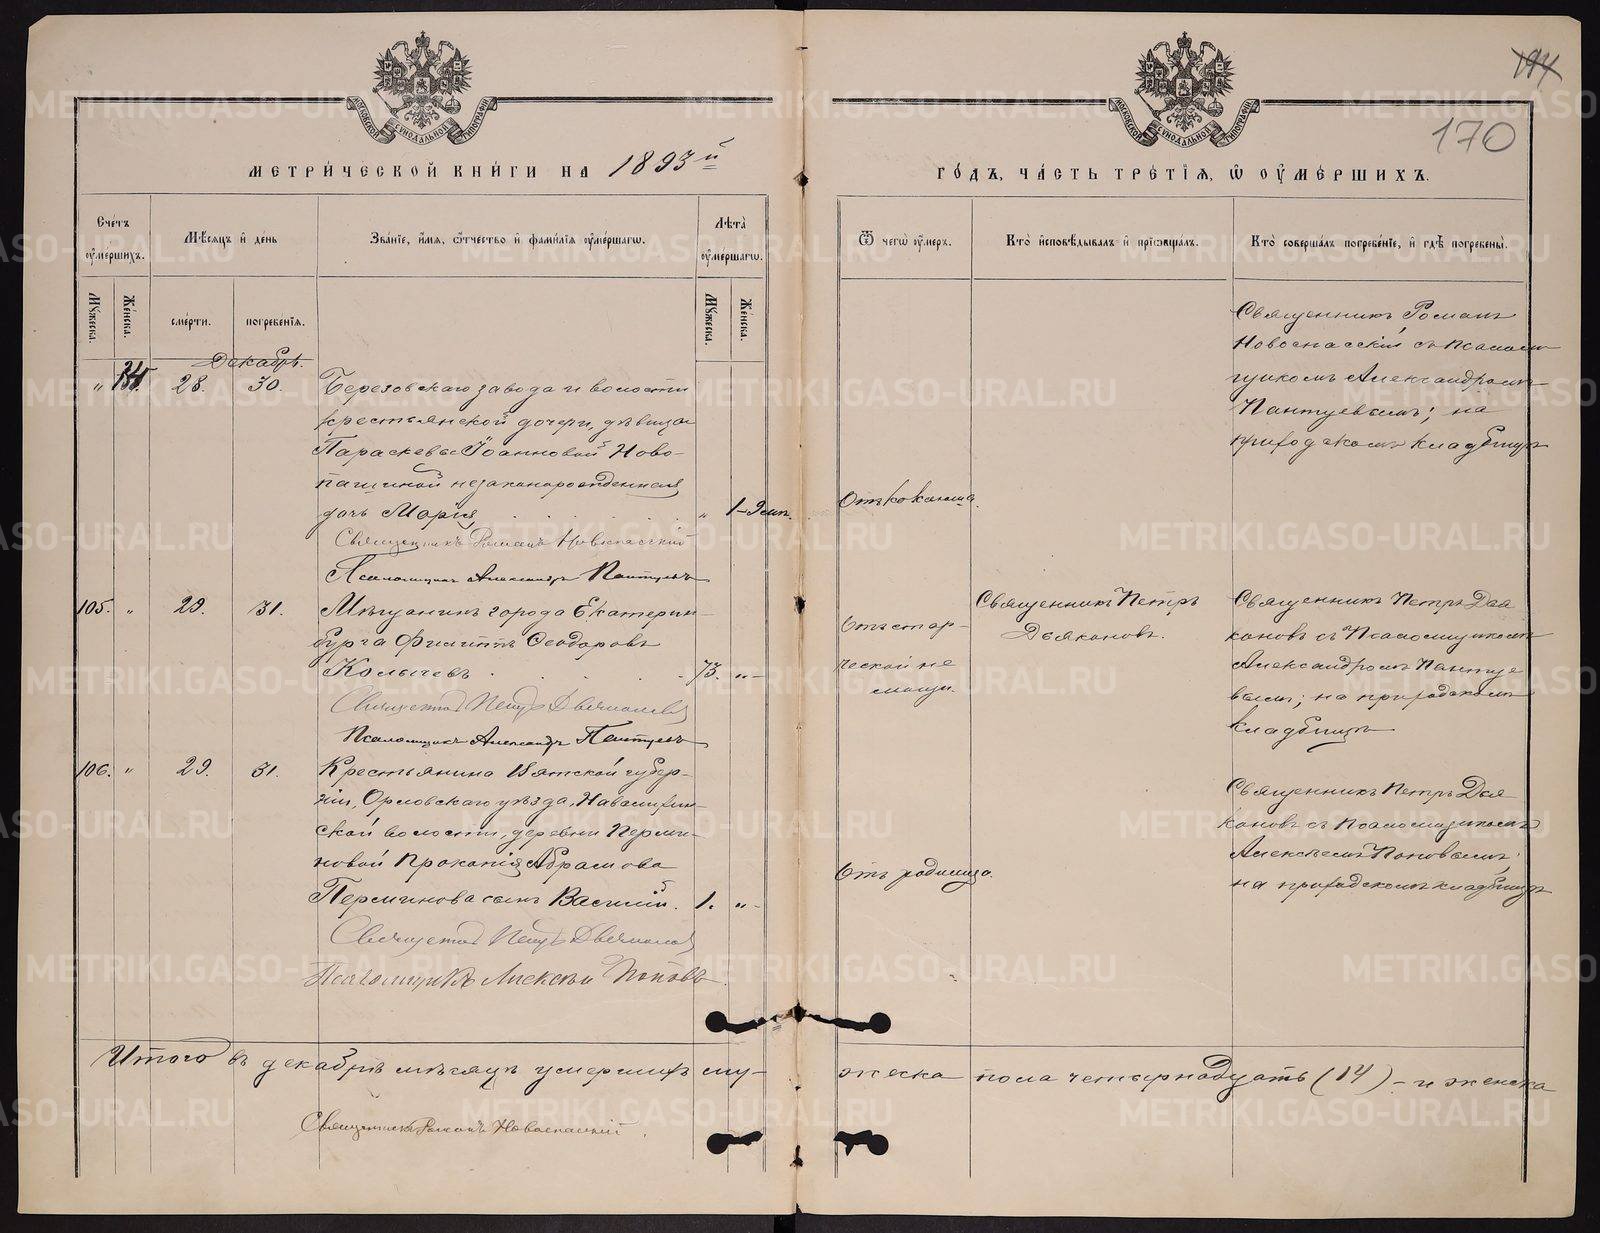 194
170
МЕТРИ́ЧЕСКОЙ КНИ́ГИ НА 1893й
ГО́ДЪ, ЧА́СТЬ ТРЕ́ТІѦ, Ѡ ОУМЕ́РШИХЪ.
Счетъ оумершихъ.
Мѣсяцъ и день
Званіе, имя, отчество и фамилія оумершагѡ.
Лѣта оумершагѡ.
Ѿ чегѡ оумеръ.
Кто исповѣдывалъ и пріобщалъ.
Кто совершалъ погребеніе, и гдѣ погребены.
Мужеска.
Женска.
смерти.
погребенія.
Мужеска.
Женска.
Декабрь.
" 28. 30. Березовскаго завода и волости
крестьянской дочери, дѣвицы
Параскевы Іоанновой Ново-
пашиной незаконорожденная
дочь Марія " 1
Священникъ Романъ Новоспасскій
Псаломщикъ Александръ Пантуевъ
Священникъ Романъ
Новоспасскій съ псалом-
щикомъ Александромъ
Пантуевымъ; на
приходскомъ кладбищѣ
105. " 29. 31. Мѣщанинъ города Екатерин-
бурга Филиппъ Ѳеодоровъ
Колычевъ 73. "
Священникъ Петръ Дьяконовъ
Псаломщикъ Александръ Пантуевъ
Отъ стар-
ческой не
мощи.
Священникъ Петръ
Дьяконовъ.
Священникъ Петръ Дья
коновъ съ Псаломщикомъ
Александромъ Пантуе
вымъ; на приходскомъ
кладбищѣ
106. " 29. 31. Крестьянина Вятской губер-
ніи, Орловскаго уѣзда,
ской волости, деревни Перми-
новой Прокопія Абрамова
Перминова сынъ Василій. 1. "
Священникъ Петръ Дьяконовъ
Псаломщикъ Алексѣй Поповъ
Отъ родимца.
Священникъ Петръ Дья
коновъ съ Псаломщикомъ
Алексѣемъ Поповымъ;
на приходскомъ кладбищѣ
Итого въ декабрѣ мѣсяцѣ умершихъ му-
жеска пола четырнадцать (14) - и женска
Священникъ Романъ Новоспасскій
METRIKI.GASO-URAL.RU